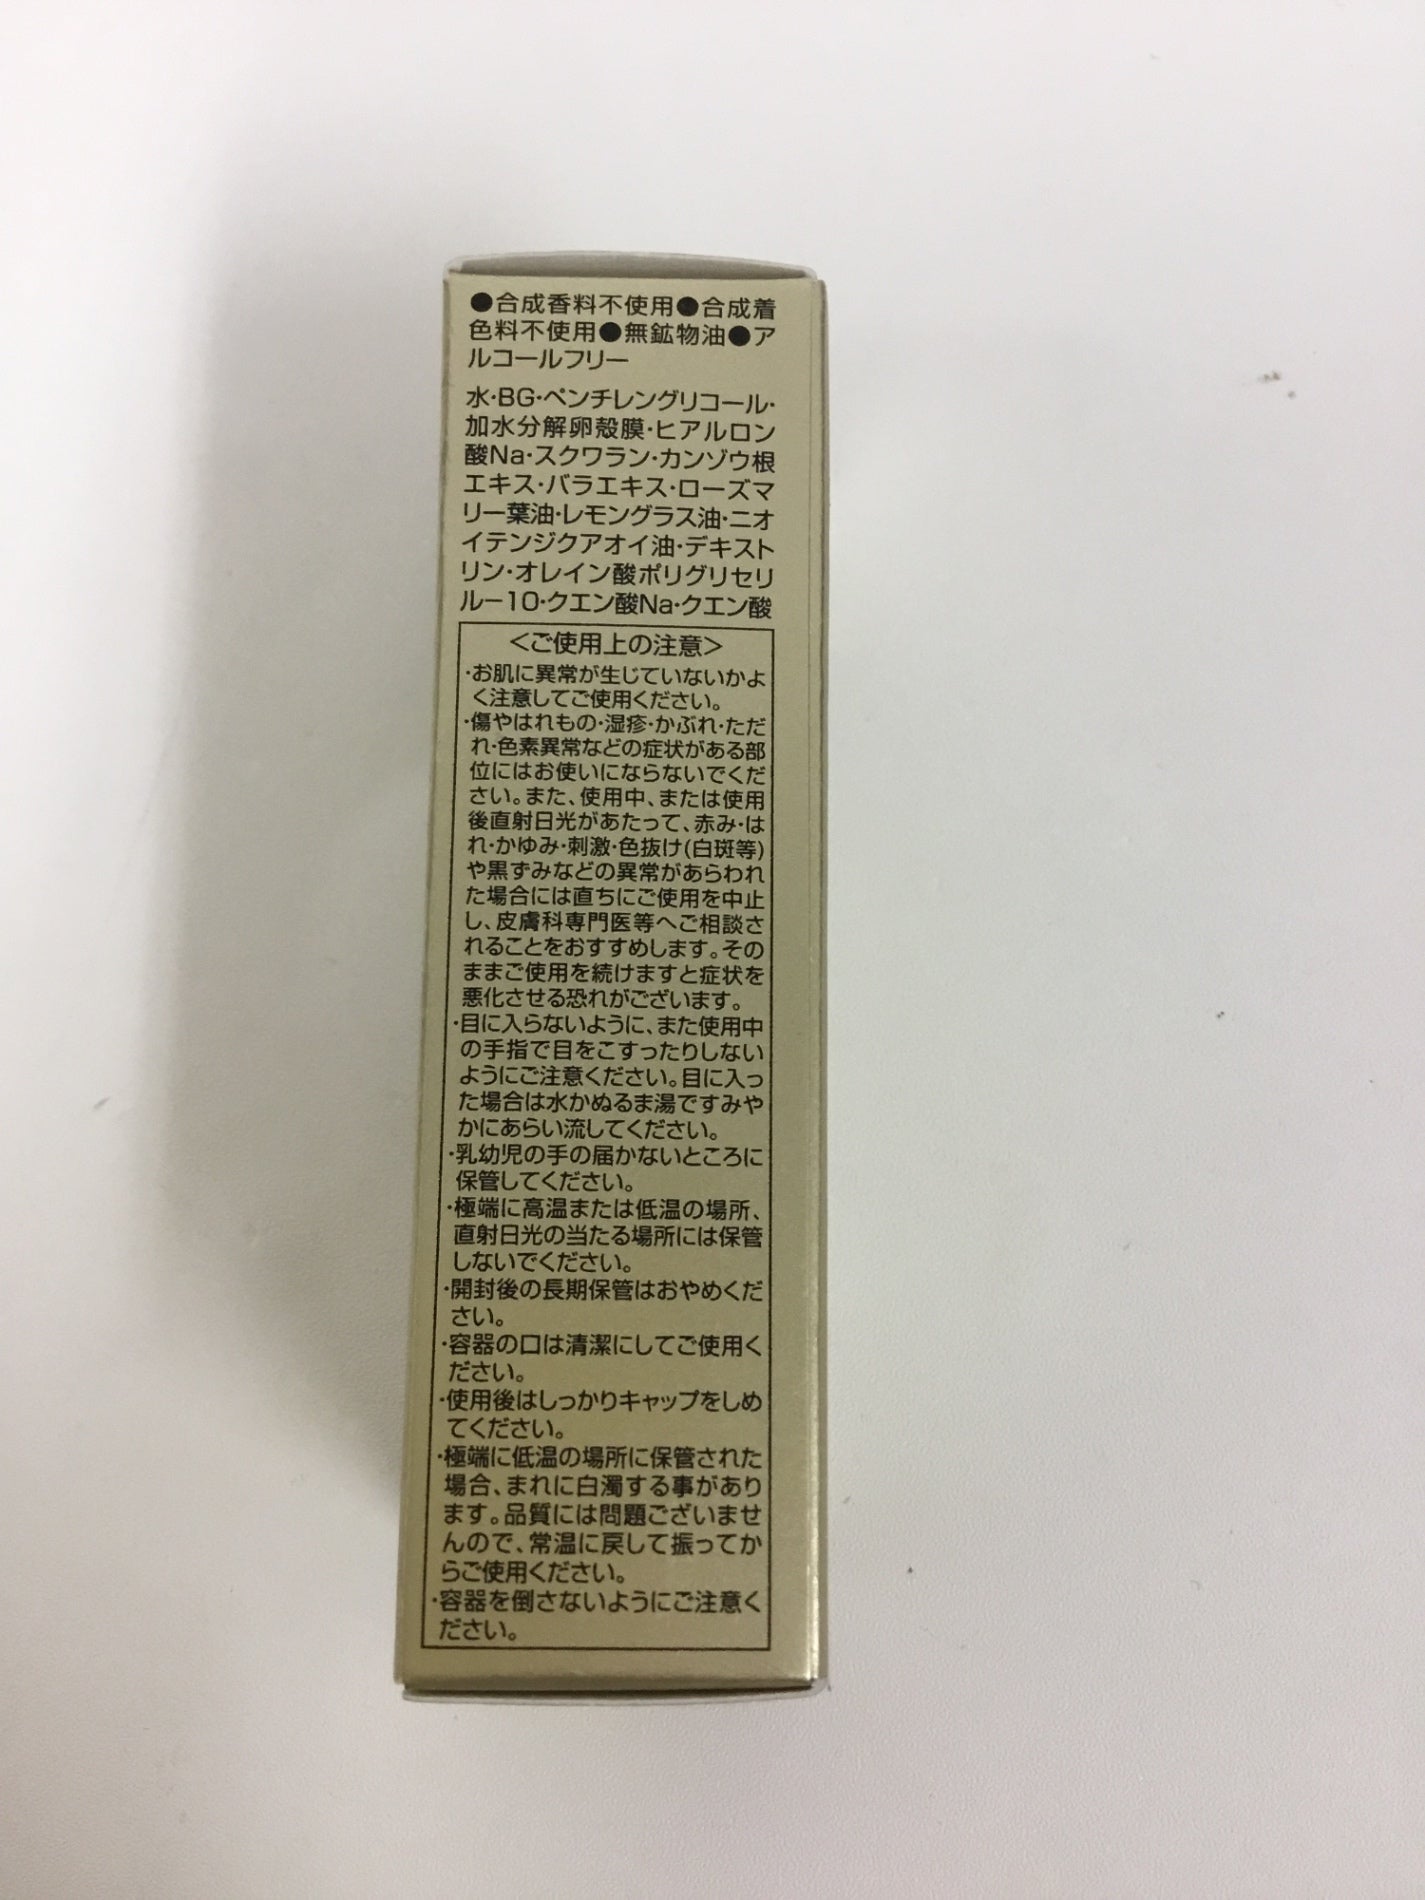 ●合成香料不使用●合成着
色料不使用●無鉱物油●ア
ルコールフリー
水・BG・ペンチレングリコール・
加水分解卵殻膜・ヒアルロン
酸Na・スクワラン・カンゾウ根
エキス・バラエキス・ローズマ
リー葉油・レモングラス油・ニオ
イテンジクアオイ油・デキスト
リン・オレイン酸ポリグリセリ
ル－10・クエン酸Na・クエン酸
＜ご使用上の注意＞
・お肌に異常が生じていないかよ
く注意してご使用ください。
・傷やはれもの・湿疹・かぶれ・ただ
れ・色素異常などの症状がある部
位にはお使いにならないでくだ
さい。また、使用中、または使用
後直射日光があたって、赤み・は
れ・かゆみ・刺激・色抜け(白斑等)
や黒ずみなどの異常があらわれ
た場合には直ちにご使用を中止
し、皮膚科専門医等へご相談さ
れることをおすすめします。その
ままご使用を続けますと症状を
悪化させる恐れがございます。
・目に入らないように、また使用中
の手指で目をこすったりしない
ようにご注意ください。目に入っ
た場合は水かぬるま湯ですみや
かにあらい流してください。
・乳幼児の手の届かないところに
保管してください。
・極端に高温または低温の場所、
直射日光の当たる場所には保管
しないでください。
・開封後の長期保管はおやめくだ
さい。
・容器の口は清潔にしてご使用く
ださい。
・使用後はしっかりキャップをしめ
てください。
・極端に低温の場所に保管された
場合、まれに白濁する事があり
ます。品質には問題ございませ
んので、常温に戻して振ってか
らご使用ください。
・容器を倒さないようにご注意く
ださい。